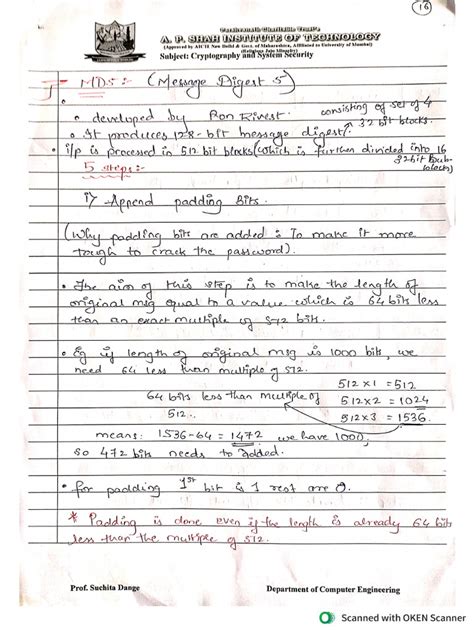 16
Parshvanath Charitable Trust's
A. P. SHAH INSTITUTE OF TECHNOLOGY
(Approved by AICTE New Delhi & Govt. of Maharashtra, Affiliated to University of Mumbai)
(Religious Jain Minority)
Subject: Cryptography and System Security
I- MD5:- (Message Digest 5)
• developed by Ron Rivest
consisting of set of 4
32 bit blocks.
• It produces 128-bit message digest
• i/p is processed in 512 bit blocks (which is further divided into 16
32-bit sub
blocks)
5 steps:-
i) Append padding Bits.
(Why padding bits are added is To make it more
tough to crack the password).
• The aim of this step is to make the length of
original msg equal to a value which is 64 bits less
than an exact multiple of 512 bits.
• Eg if length of original msg is 1000 bits, we
need 64 less than multiple of 512.
64 bits less than multiple of
512.
512 x 1 = 512
512 x 2 = 1024
512 x 3 = 1536
means: 1536-64 = 1472 we have 1000,
so 472 bits needs to added.
• for padding 1st bit is 1 rest are 0.
* Padding is done even if the length is already 64 bit
less than the multiple of 512.
Prof. Suchita Dange
Department of Computer Engineering
Scanned with OKEN Scanner